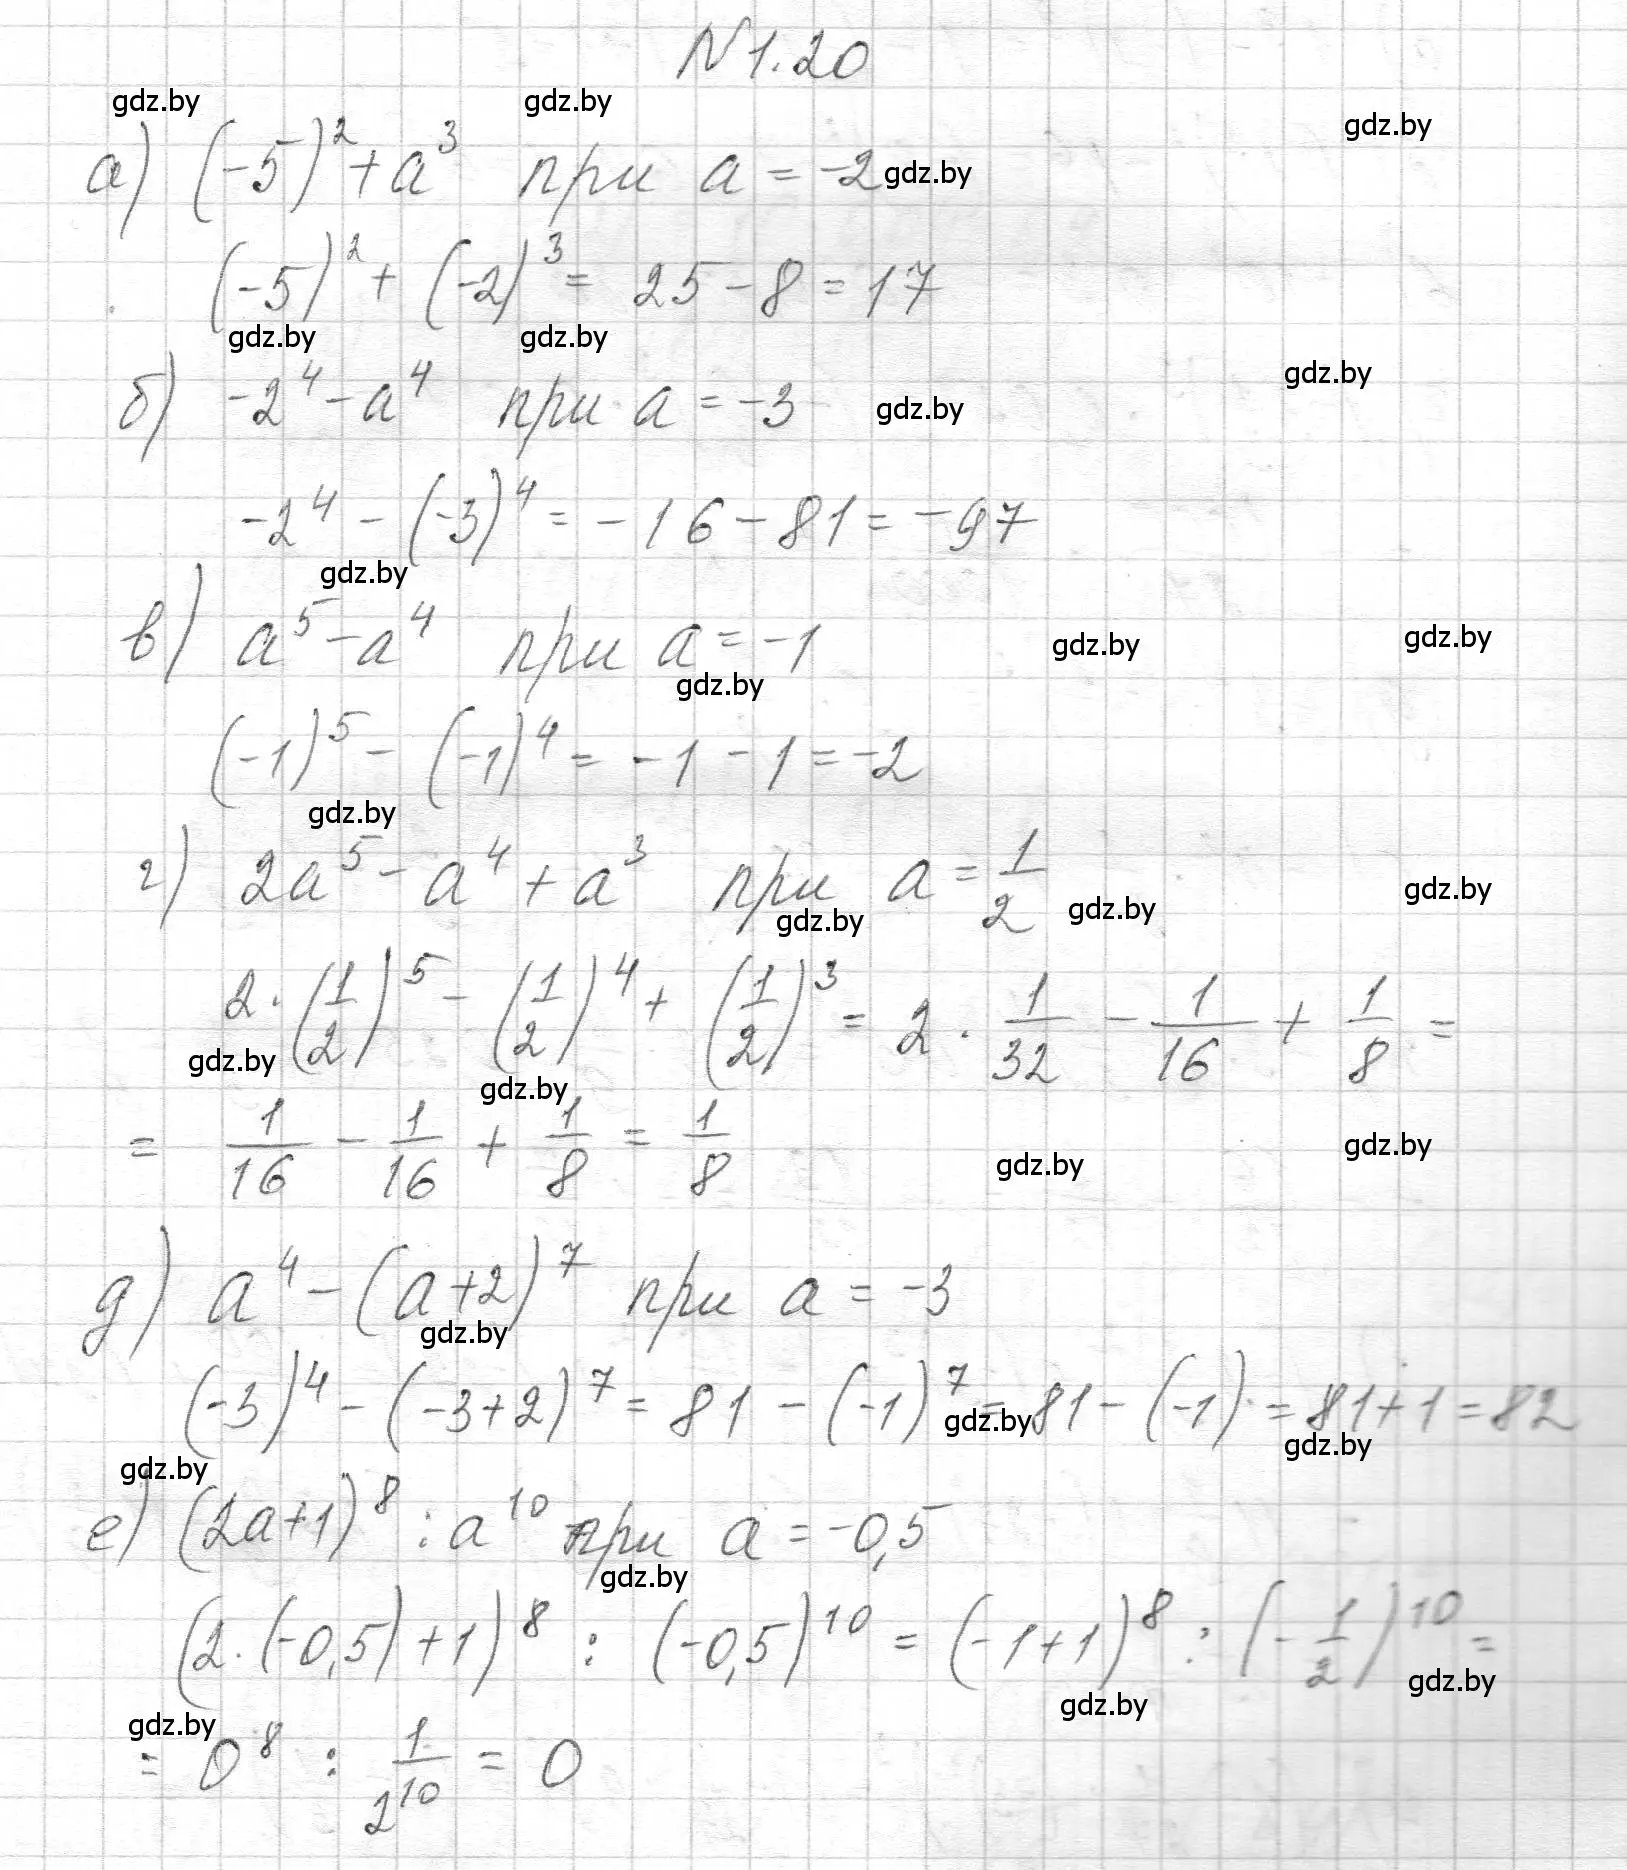 N 1.20
gdz.by gdz.by gdz.by
а) (-5)² + a³ при a = -2 gdz.by
(-5)² + (-2)³ = 25 - 8 = 17
gdz.by gdz.by gdz.by
б) -2⁴ - a⁴ при a = -3 gdz.by
-2⁴ - (-3)⁴ = -16 - 81 = -97
gdz.by
в) a⁵ - a⁴ при a = -1 gdz.by gdz.by
gdz.by
(-1)⁵ - (-1)⁴ = -1 - 1 = -2
gdz.by
г) 2a⁵ - a⁴ + a³ при a = 1/2 gdz.by gdz.by
gdz.by
2 · (1/2)⁵ - (1/2)⁴ + (1/2)³ = 2 · 1/32 - 1/16 + 1/8 =
gdz.by gdz.by
= 1/16 - 1/16 + 1/8 = 1/8 gdz.by gdz.by
д) a⁴ - (a+2)⁷ при a = -3
gdz.by
(-3)⁴ - (-3+2)⁷ = 81 - (-1)⁷ = 81 - (-1) = 81+1 = 82
gdz.by gdz.by
gdz.by
е) (2a+1)⁸ : a¹⁰ при a = -0,5
gdz.by
(2·(-0,5)+1)⁸ : (-0,5)¹⁰ = (-1+1)⁸ : (-1/2)¹⁰ =
gdz.by gdz.by
gdz.by
= 0⁸ : 1/2¹⁰ = 0